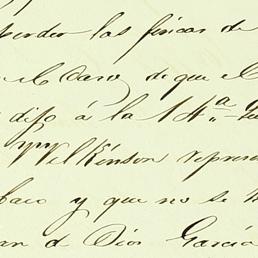 perder las fincas de
el caso de que el
dijo á la 14ª
Wilkinson repres
baco y que no se
an d Dios García